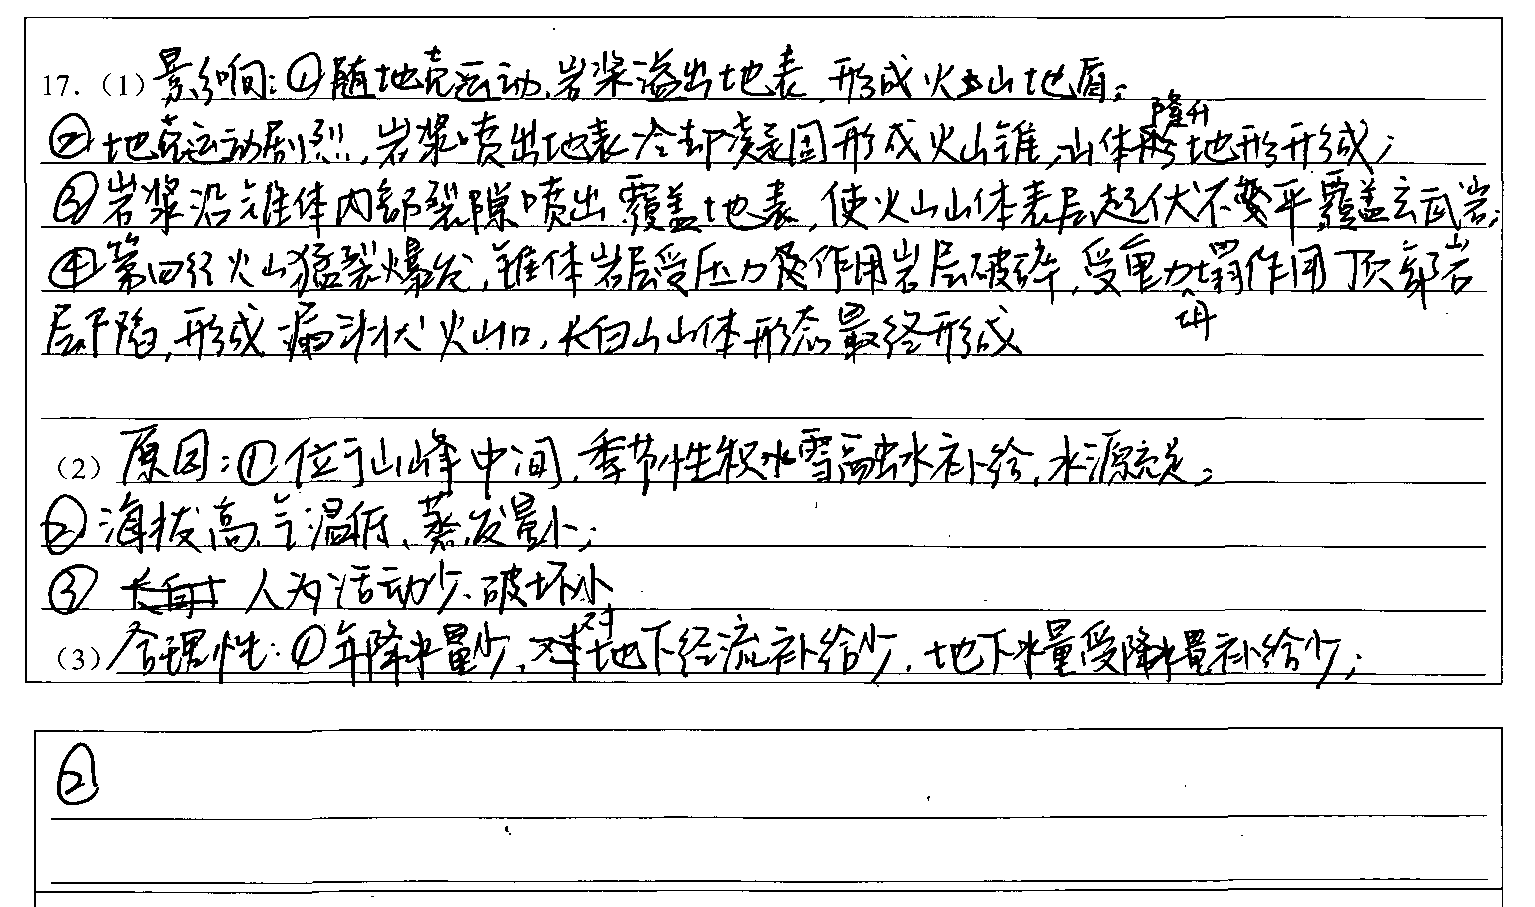 17.（1）影响：①随地壳运动，岩浆溢出地表，形成火山地盾；
②地壳运动剧烈，岩浆喷出地表冷却凝固形成火山锥，山体隆升地形形成；
③岩浆沿锥体内部裂隙喷出覆盖地表，使火山山体表层起伏不平覆盖玄武岩；
④第四纪火山猛裂爆发，锥体岩层受压力作用岩层破碎，受重力塌作用顶部岩
层下陷，形成漏斗状火山口，长白山山体形态最终形成
（2）原因：①位于山峰中间，季节性积冰雪融水补给，水源充足；
②海拔高，气温低，蒸发量小；
③人为活动少，破坏小
（3）合理性：①年降水量少，对地下径流补给少，地下水量受降水量补给少；
②